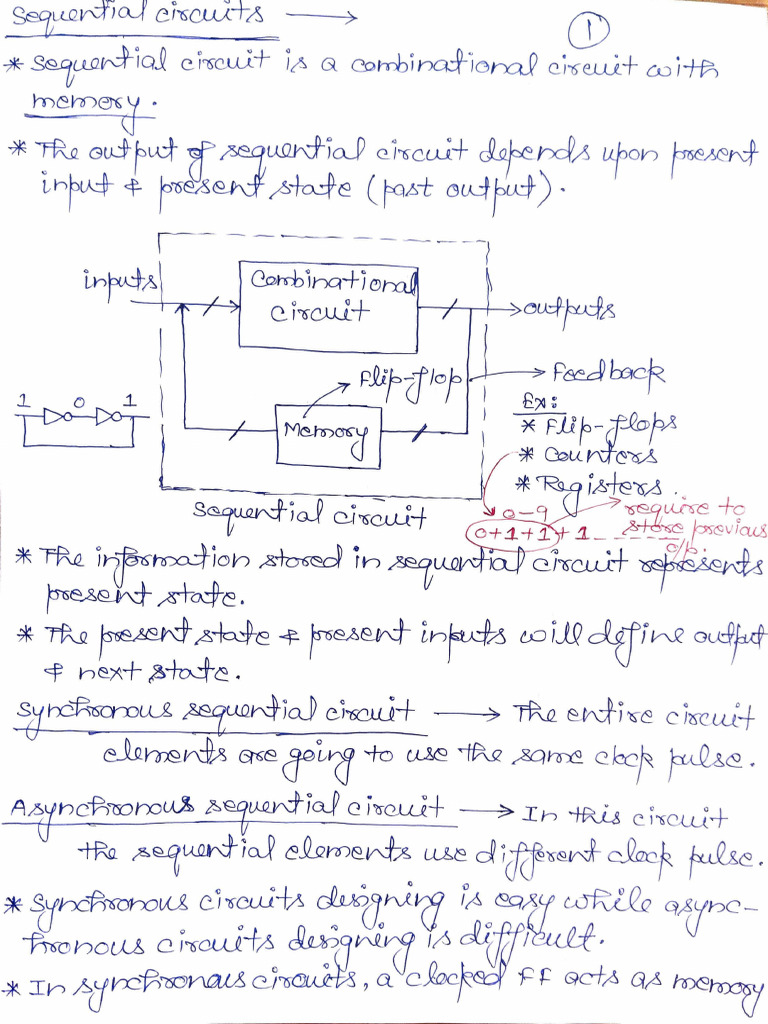 Sequential circuits ⟶
1
* Sequential circuit is a combinational circuit with
memory.
* The output of sequential circuit depends upon present
input & present state (past output).
inputs
Combinational
circuit
outputs
Flip-flop
Feedback
Memory
1 0 1
Ex:
* Flip-flops
* Counters
* Registers.
Sequential circuit
0-9
require to
store previous
o/p.
0+1+1+1 - - - - - -
* The information stored in sequential circuit represents
present state.
* The present state & present inputs will define output
& next state.
Synchronous sequential circuit ⟶ The entire circuit
elements are going to use the same clock pulse.
Asynchronous sequential circuit ⟶ In this circuit
the sequential elements use different clock pulse.
* Synchronous circuits designing is easy while async-
hronous circuits designing is difficult.
* In synchronous circuits, a clocked FF acts as memory